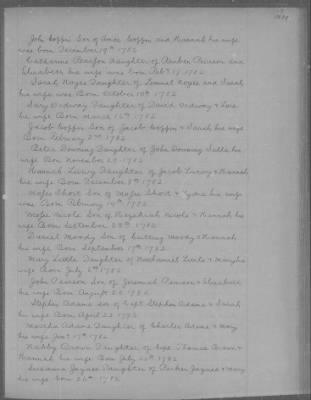 John Coffin Son of Amos Coffin and Hannah his wife
was born December 19th 1782
Catharine Pearson Daughter of Reuben Pearson and
Elizabeth his wife was born Feb 17 1782
Sarah Noyes Daughter of Lemuel Noyes and Sarah
his wife was Born October 10th 1782
Daughter of David &
his wife Born March 16th 1782
Jacob Coffin Son of Jacob Coffin & Sarah his wife
Born February 2nd 1782
Betse Downing Daughter of John Downing his
wife Born November 29 1782
Hannah Daughter of Jacob & Hannah
his wife Born December 8th 1782
Moses Short Son of Moses Short & his wife
was Born February 14th 1782
Moses Son of Hezekiah & Hannah his
wife Born September 28th 1782
Daniel Moody Son of Cutting Moody & Hannah
his wife Born September 17th 1782
Mary Little Daughter of Nathaniel Little & Mary his
wife Born July 6th 1782
John Pearson Son of Jeremiah Pearson & Elizabeth
his wife Born August 22 1782
Stephen Adams Son of Capt Stephen Adams & Sarah
his wife Born April 23 1782
Martha Adams Daughter of Charles Adams & Mary
his wife 17th 1782
Nabby Brown Daughter of Capt Thomas Brown &
Hannah his wife Born July 20th 1782
Susanna Jaques Daughter of Parker Jaques & Mary
his wife born 26th 1782